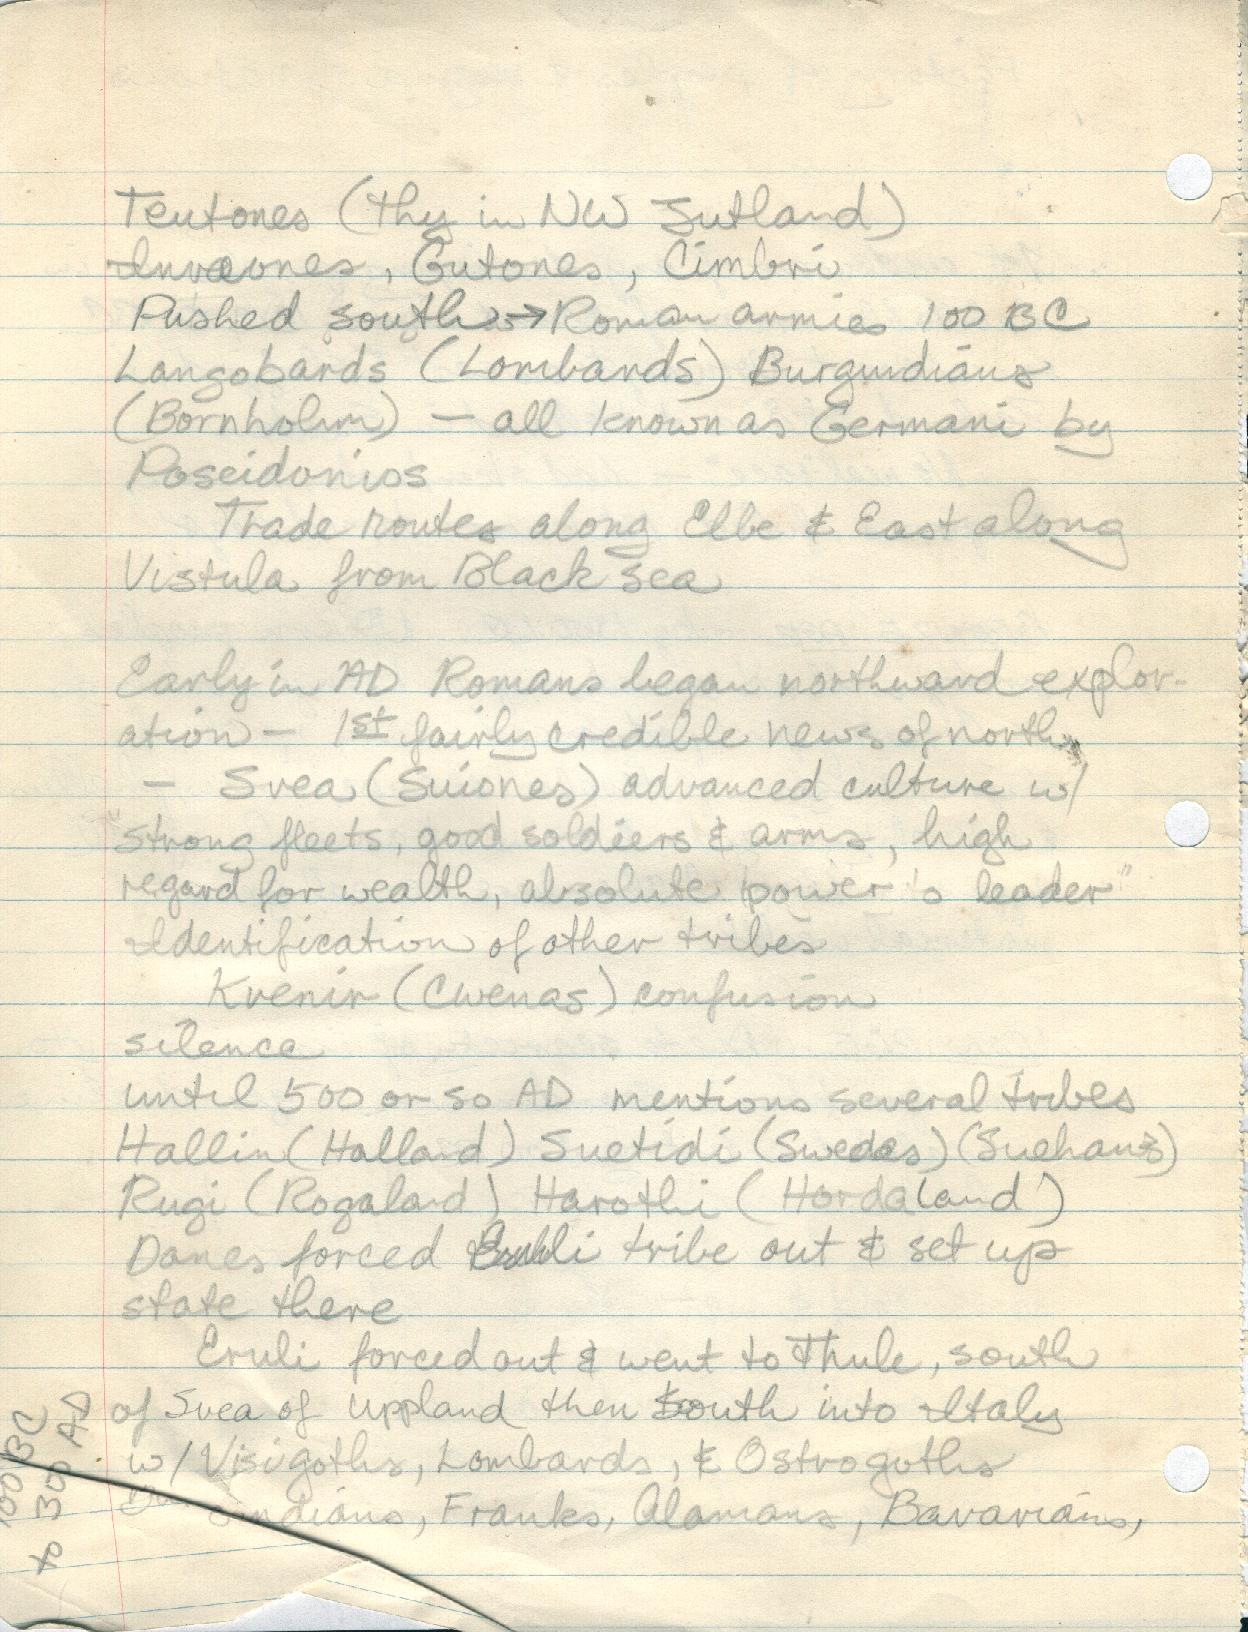 Teutones (Thy in NW Jutland)
Invaeones, Gutones, Cimbri
Pushed south → Roman armies 100 BC
Langobards (Lombards) Burgundians
(Bornholm) — all known as Germani by
Poseidonios
Trade routes along Elbe & East along
Vistula from Black sea
Early in AD Romans began northward explor-
ation — 1st fairly credible news of north
— Svea (Suiones) advanced culture w/
"strong fleets, good soldiers & arms, high
regard for wealth, absolute power 'o leader"
Identification of other tribes
Kvenir (Cwenas) confusion
silence
until 500 or so AD mentions several tribes
Hallin (Halland) Suetidi (Swedes) (Suehans)
Rugi (Rogaland) Harothi (Hordaland)
Danes forced Eruli tribe out & set up
state there
Eruli forced out & went to Thule, south
of Svea of Uppland then south into Italy
w/ Visigoths, Lombards, & Ostrogoths
Franks, Alamans, Bavarians,
100 BC
to 300 AD